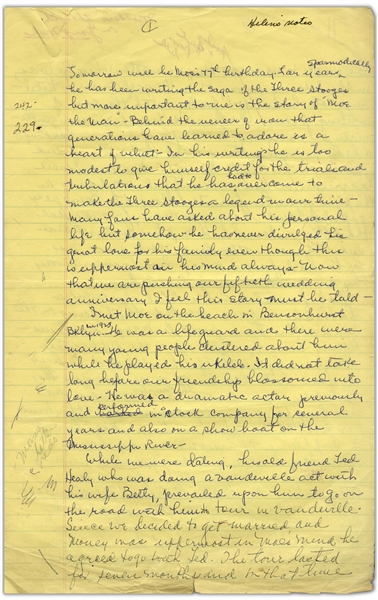 Helen's notes
1
Tomorrow will be Moe's 77th birthday. For years, spasmodically
he has been writing the saga of the Three Stooges
242-
but more important to me is the story of "Moe
229.
the Man" - Behind the veneer of iron that
generations have learned to adore is a
heart of velvet - In his writing he is too
modest to give himself credit for the trials and
tribulations that he has had to overcome to
make the Three Stooges a legend in our time -
Many fans have asked about his personal
life but somehow he has never divulged his
great love for his family even though this
is uppermost in his mind always - Now
that we are pushing our fiftieth wedding
anniversary I feel this story must be told -
I met Moe on the beach in Bensonhurst
Bklyn - in 1922 He was a lifeguard and there were
many young people clustered about him
while he played his ukelele. It did not take
long before our friendship blossomed into
love. He was a dramatic actor previously
and performed in a stock company for several
years and also on a show boat on the
Mississippi River -
While we were dating, his old friend Ted
Healy who was doing a vaudeville act with
his wife Betty, prevailed upon him to go on
the road with him to tour in Vaudeville.
Since we decided to get married and
money was uppermost in Moe's mind he
agreed to go with Ted. The tour lasted
for seven months and in that time